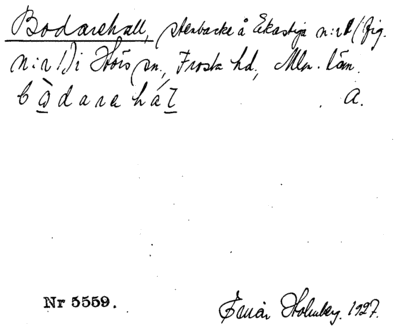 Bodarehall, stenbacke å Ekastiga n:r 8 (fig.
n:r 1) i Hörs sn, Frosta hd, Mlm. län.
bòdarehál A.
Nr 5559. Einar Holmberg. 1927.